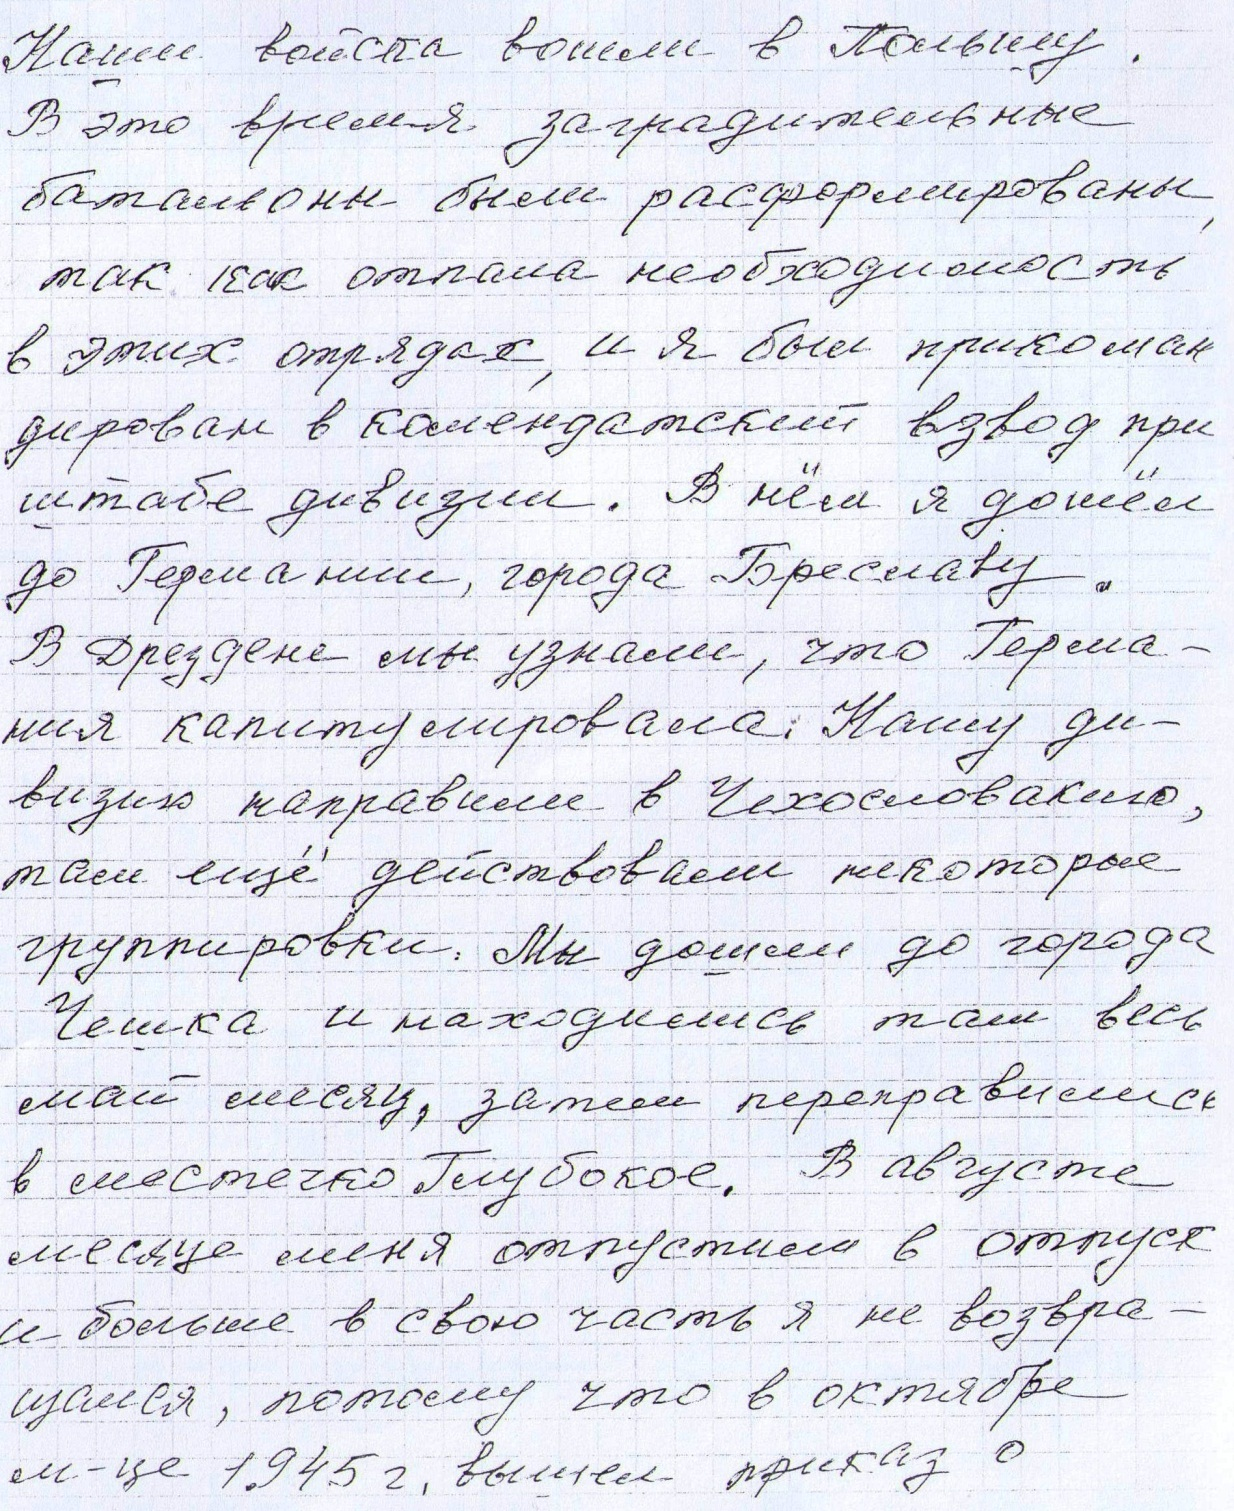 Наши войска вошли в Польшу.
В это время заградительные
батальоны были расформированы,
так как отпала необходимость
в этих отрядах, и я был прикоман
дирован в комендатский взвод при
штабе дивизии. В нём я дошёл
до Германии, города Бреславу.
В Дрездене мы узнали, что Герма-
ния капитулировала. Нашу ди-
визию направили в Чехословакию,
там ещё действовали некоторые
группировки. Мы дошли до города
Чешка и находились там весь
май месяц, затем переправились
в местечко Глубокое. В августе
месяце меня отпустили в отпуск
и больше в свою часть я не возвра-
щался, потому что в октябре
м-це 1945 г. вышел приказ о